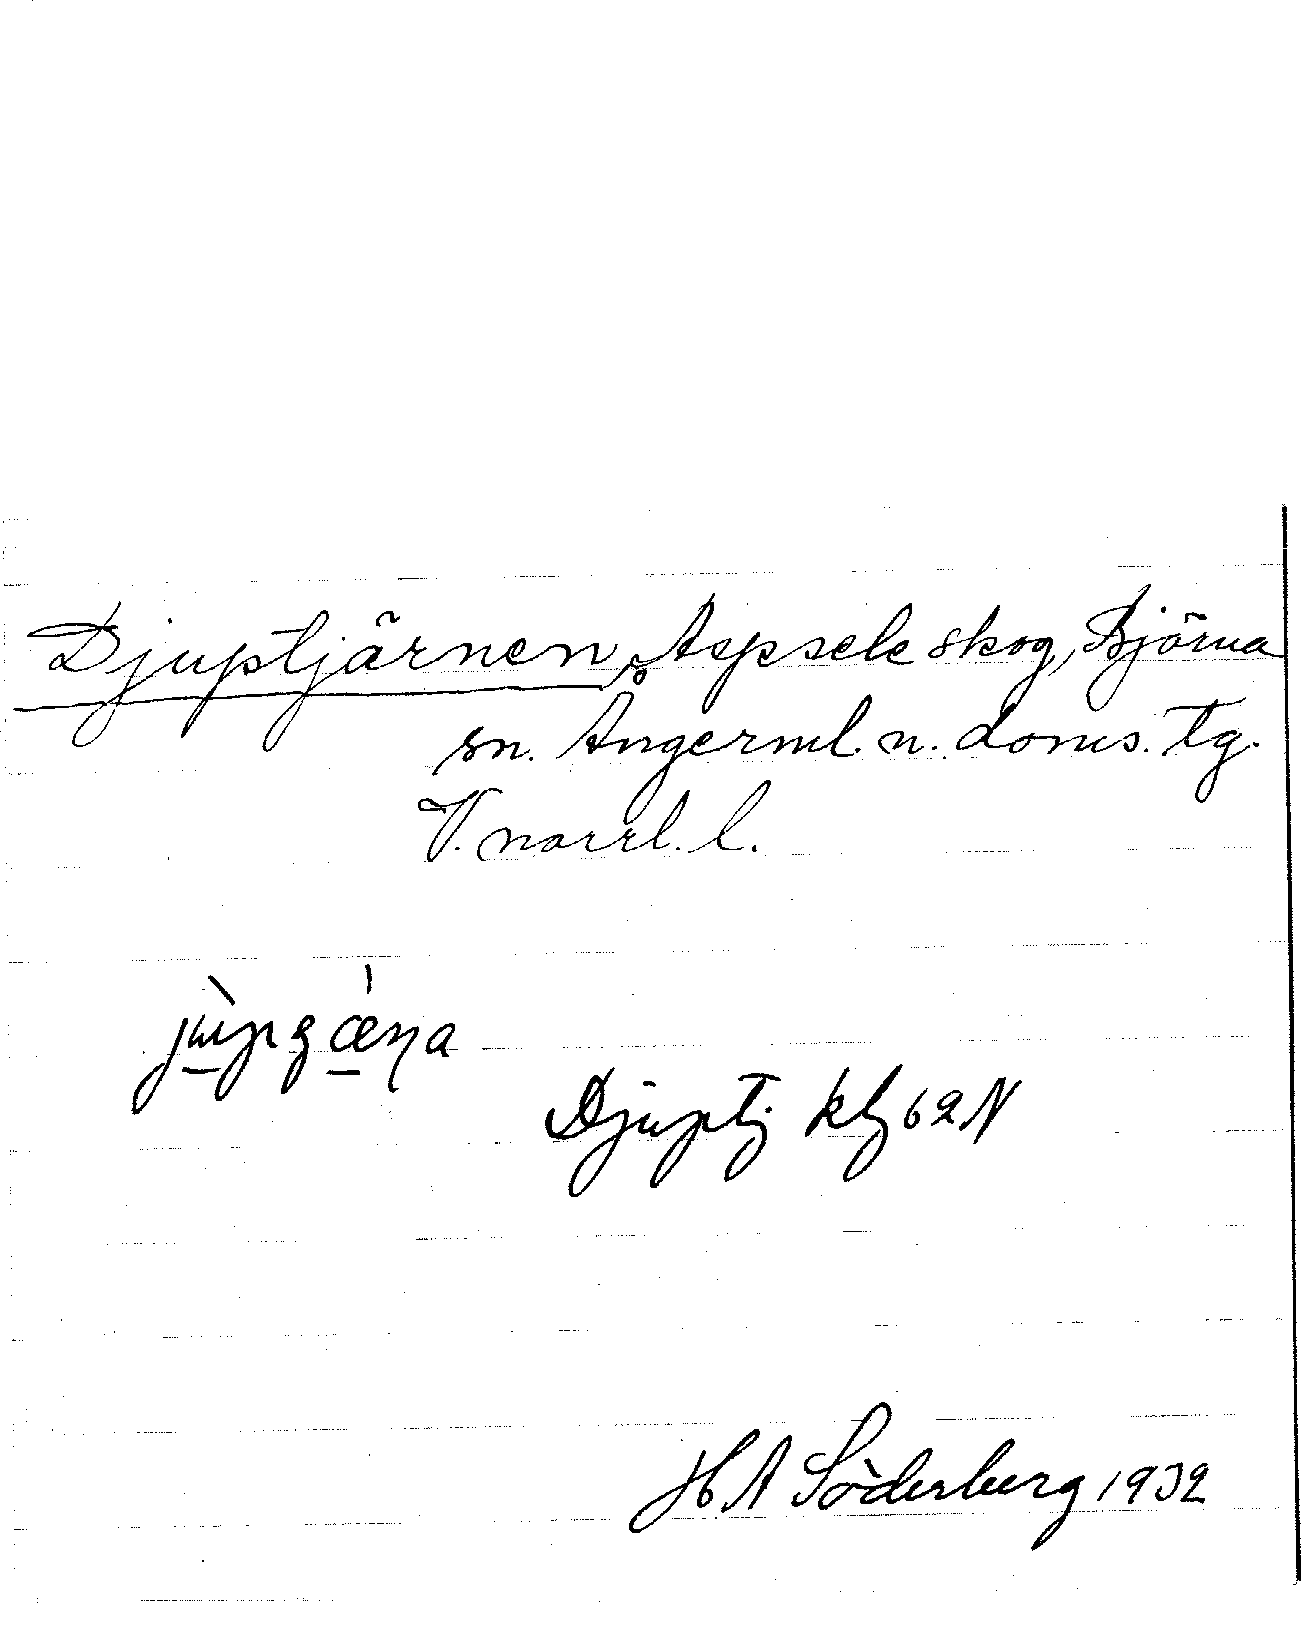 Djuptjärnen, Aspsele skog, Björna
sn. Ångerml. n. doms. tg.
V. norrl. l.
Djuptj. ktj 62 N
H A Söderberg 1932